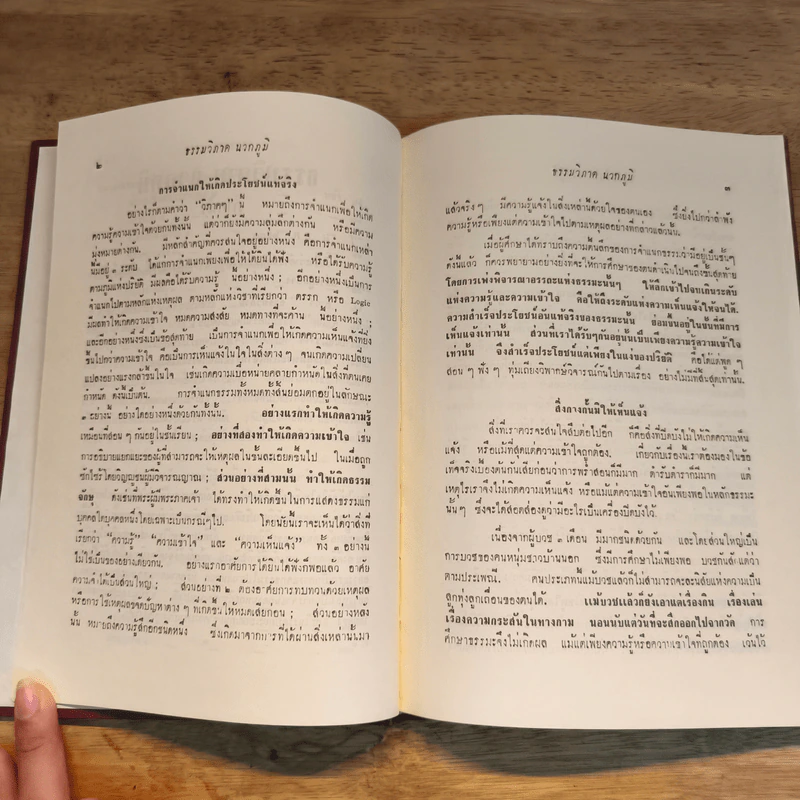 ๒
ธรรมวิภาค นวกภูมิ
การจำแนกให้เกิดประโยชน์แท้จริง
อย่างไรก็ตามคำว่า "วิภาคๆ" นี้ หมายถึงการจำแนกเพื่อให้เกิด
ความรู้ความเข้าใจด้วยกันทั้งนั้น แต่ว่าก็ยังมีความลุ่มลึกต่างกัน หรือมีความ
มุ่งหมายต่างกัน. มีหลักสำคัญที่ควรสนใจอยู่อย่างหนึ่ง คือการจำแนกเหล่า
นี้มีอยู่ ๓ ระดับ ได้แก่การจำแนกเพียงเพื่อให้ได้ยินได้ฟัง หรือให้รับความรู้
ตามภูมิแห่งปริยัติ มีผลคือได้รับความรู้ นี้อย่างหนึ่ง ; อีกอย่างหนึ่งการ
จำแนกไปตามหลักแห่งเหตุผล ตามหลักแห่งวิชาที่เรียกว่า ตรรก หรือ Logic
มีผลทำให้เกิดความเข้าใจ หมดความสงสัย หมดทางที่จะค้าน นี้อย่างหนึ่ง ;
และอีกอย่างหนึ่งซึ่งเป็นข้อสุดท้าย เป็นการจำแนกเพื่อให้เกิดความเห็นแจ้งที่ยิ่ง
ขึ้นไปกว่าความเข้าใจ คือเป็นการเห็นแจ้งในใจในสิ่งต่าง ๆ จนเกิดความเปลี่ยน
แปลงอย่างแรงกล้าขึ้นในใจ เช่นเกิดความเบื่อหน่ายคลายกำหนัดในสิ่งที่ตนเคย
กำหนัด ดังนี้เป็นต้น. การจำแนกธรรมทั้งหมดทั้งสิ้นย่อมตกอยู่ในลักษณะ
๓ อย่างนี้ อย่างใดอย่างหนึ่งด้วยกันทั้งนั้น. อย่างแรกทำให้เกิดความรู้
เหมือนที่สอน ๆ กันอยู่ในชั้นเรียน ; อย่างที่สองทำให้เกิดความเข้าใจ เช่น
การอธิบายแยกแยะของผู้ที่สามารถจะให้เหตุผลในชั้นละเอียดขึ้นไป ในเมื่อถูก
ซักไซ้รู้โดยวิญญูชนผู้มีวิจารณญาณ ; ส่วนอย่างที่สามนั้น ทำให้เกิดธรรม
จักษุ ดังเช่นที่พระผู้มีพระภาคเจ้า ได้ทรงทำให้เกิดขึ้นในการแสดงธรรมแก่
บุคคลใดบุคคลหนึ่งโดยเฉพาะเป็นกรณีๆไป. โดยนัยนี้เราจะเห็นได้ว่าสิ่งที่
เรียกว่า "ความรู้" "ความเข้าใจ" และ "ความเห็นแจ้ง" ทั้ง ๓ อย่างนี้
ไม่ใช่เป็นของอย่างเดียวกัน. อย่างแรกอาศัยการได้ยินได้ฟังก็พอแล้ว อาศัย
ความจำได้เป็นส่วนใหญ่ ; ส่วนอย่างที่ ๒ ต้องอาศัยการทบทวนด้วยเหตุผล
หรือการใช้เหตุผลขจัดปัญหาต่าง ๆ ที่เกิดขึ้นให้หมดเสียก่อน ; ส่วนอย่างหลัง
นั้น หมายถึงความรู้สึกอีกชนิดหนึ่ง ซึ่งเกิดมาจากการที่ได้ผ่านสิ่งเหล่านั้นมา
ธรรมวิภาค นวกภูมิ
๓
แล้วจริง ๆ มีความรู้แจ้งในสิ่งเหล่านี้ด้วยใจของตนเอง ซึ่งยิ่งไปกว่าลำพัง
ความรู้หรือเพียงแต่ความเข้าใจไปตามเหตุผลอย่างที่กล่าวแล้วนั้น.
เมื่อผู้ศึกษาได้ทราบถึงความตื้นลึกของการจำแนกธรรมว่ามีอยู่เป็นชั้นๆ
ดังนี้แล้ว ก็ควรพยายามอย่างยิ่งที่จะให้การศึกษาของตนดำเนินไปจนถึงชั้นสุดท้าย
โดยการเพ่งพิจารณาอรรถะแห่งธรรมะนั้นๆ ให้ลึกเข้าไปจนเกินระดับ
แห่งความรู้และความเข้าใจ คือให้ถึงระดับแห่งความเห็นแจ้งให้จนได้.
ความสำเร็จประโยชน์อันแท้จริงของธรรมะนั้น ย่อมขึ้นอยู่ในขั้นที่มีการ
เห็นแจ้งเท่านั้น ส่วนที่เราได้รับๆกันอยู่นั้นเป็นเพียงความรู้ความเข้าใจ
เท่านั้น จึงสำเร็จประโยชน์แต่เพียงในแง่ของปริยัติ คือได้แต่พูด ๆ
สอน ๆ ฟัง ๆ ทุ่มเถียงวิพากษ์วิจารณ์กันไปตามเรื่อง อย่างไม่มีที่สิ้นสุดเท่านั้น.
สิ่งกางกั้นมิให้เห็นแจ้ง
สิ่งที่เราควรจะสนใจสืบต่อไปอีก ก็คือสิ่งที่ปิดบังไม่ให้เกิดความเห็น
แจ้ง หรือแม้ที่สุดแต่ความเข้าใจถูกต้อง. เกี่ยวกับเรื่องนี้เราต้องมองในข้อ
เท็จจริงเบื้องต้นกันเสียก่อนว่าการพร่ำสอนก็มีมาก ตำรับตำราก็มีมาก แต่
เหตุไรเราจึงไม่เกิดความเห็นแจ้ง หรือแม้แต่ความเข้าใจอันเพียงพอในหลักธรรมะ
นั้น ๆ ซึ่งจะได้สอดส่องดูว่ามีอะไรเป็นเครื่องปิดบังไว้.
เนื่องจากผู้บวช ๓ เดือน มีมากชนิดด้วยกัน และโดยส่วนใหญ่เป็น
การบวชของคนหนุ่มชาวบ้านนอก ซึ่งมีการศึกษาไม่เพียงพอ บวชกันสักแต่ว่า
ตามประเพณี. คนประเภทนี้แม้บวชแล้วก็ไม่สามารถจะละนิสัยแห่งความเป็น
ลูกทุ่งลูกเถื่อนของตนได้. แม้บวชแล้วก็ยังเอาแต่เรื่องกิน เรื่องเล่น
เรื่องความกระสันในทางกาม นอนนับแต่วันที่จะสึกออกไปจากวัด การ
ศึกษาธรรมะจึงไม่เกิดผล แม้แต่เพียงความรู้หรือความเข้าใจที่ถูกต้อง เว้นไว้